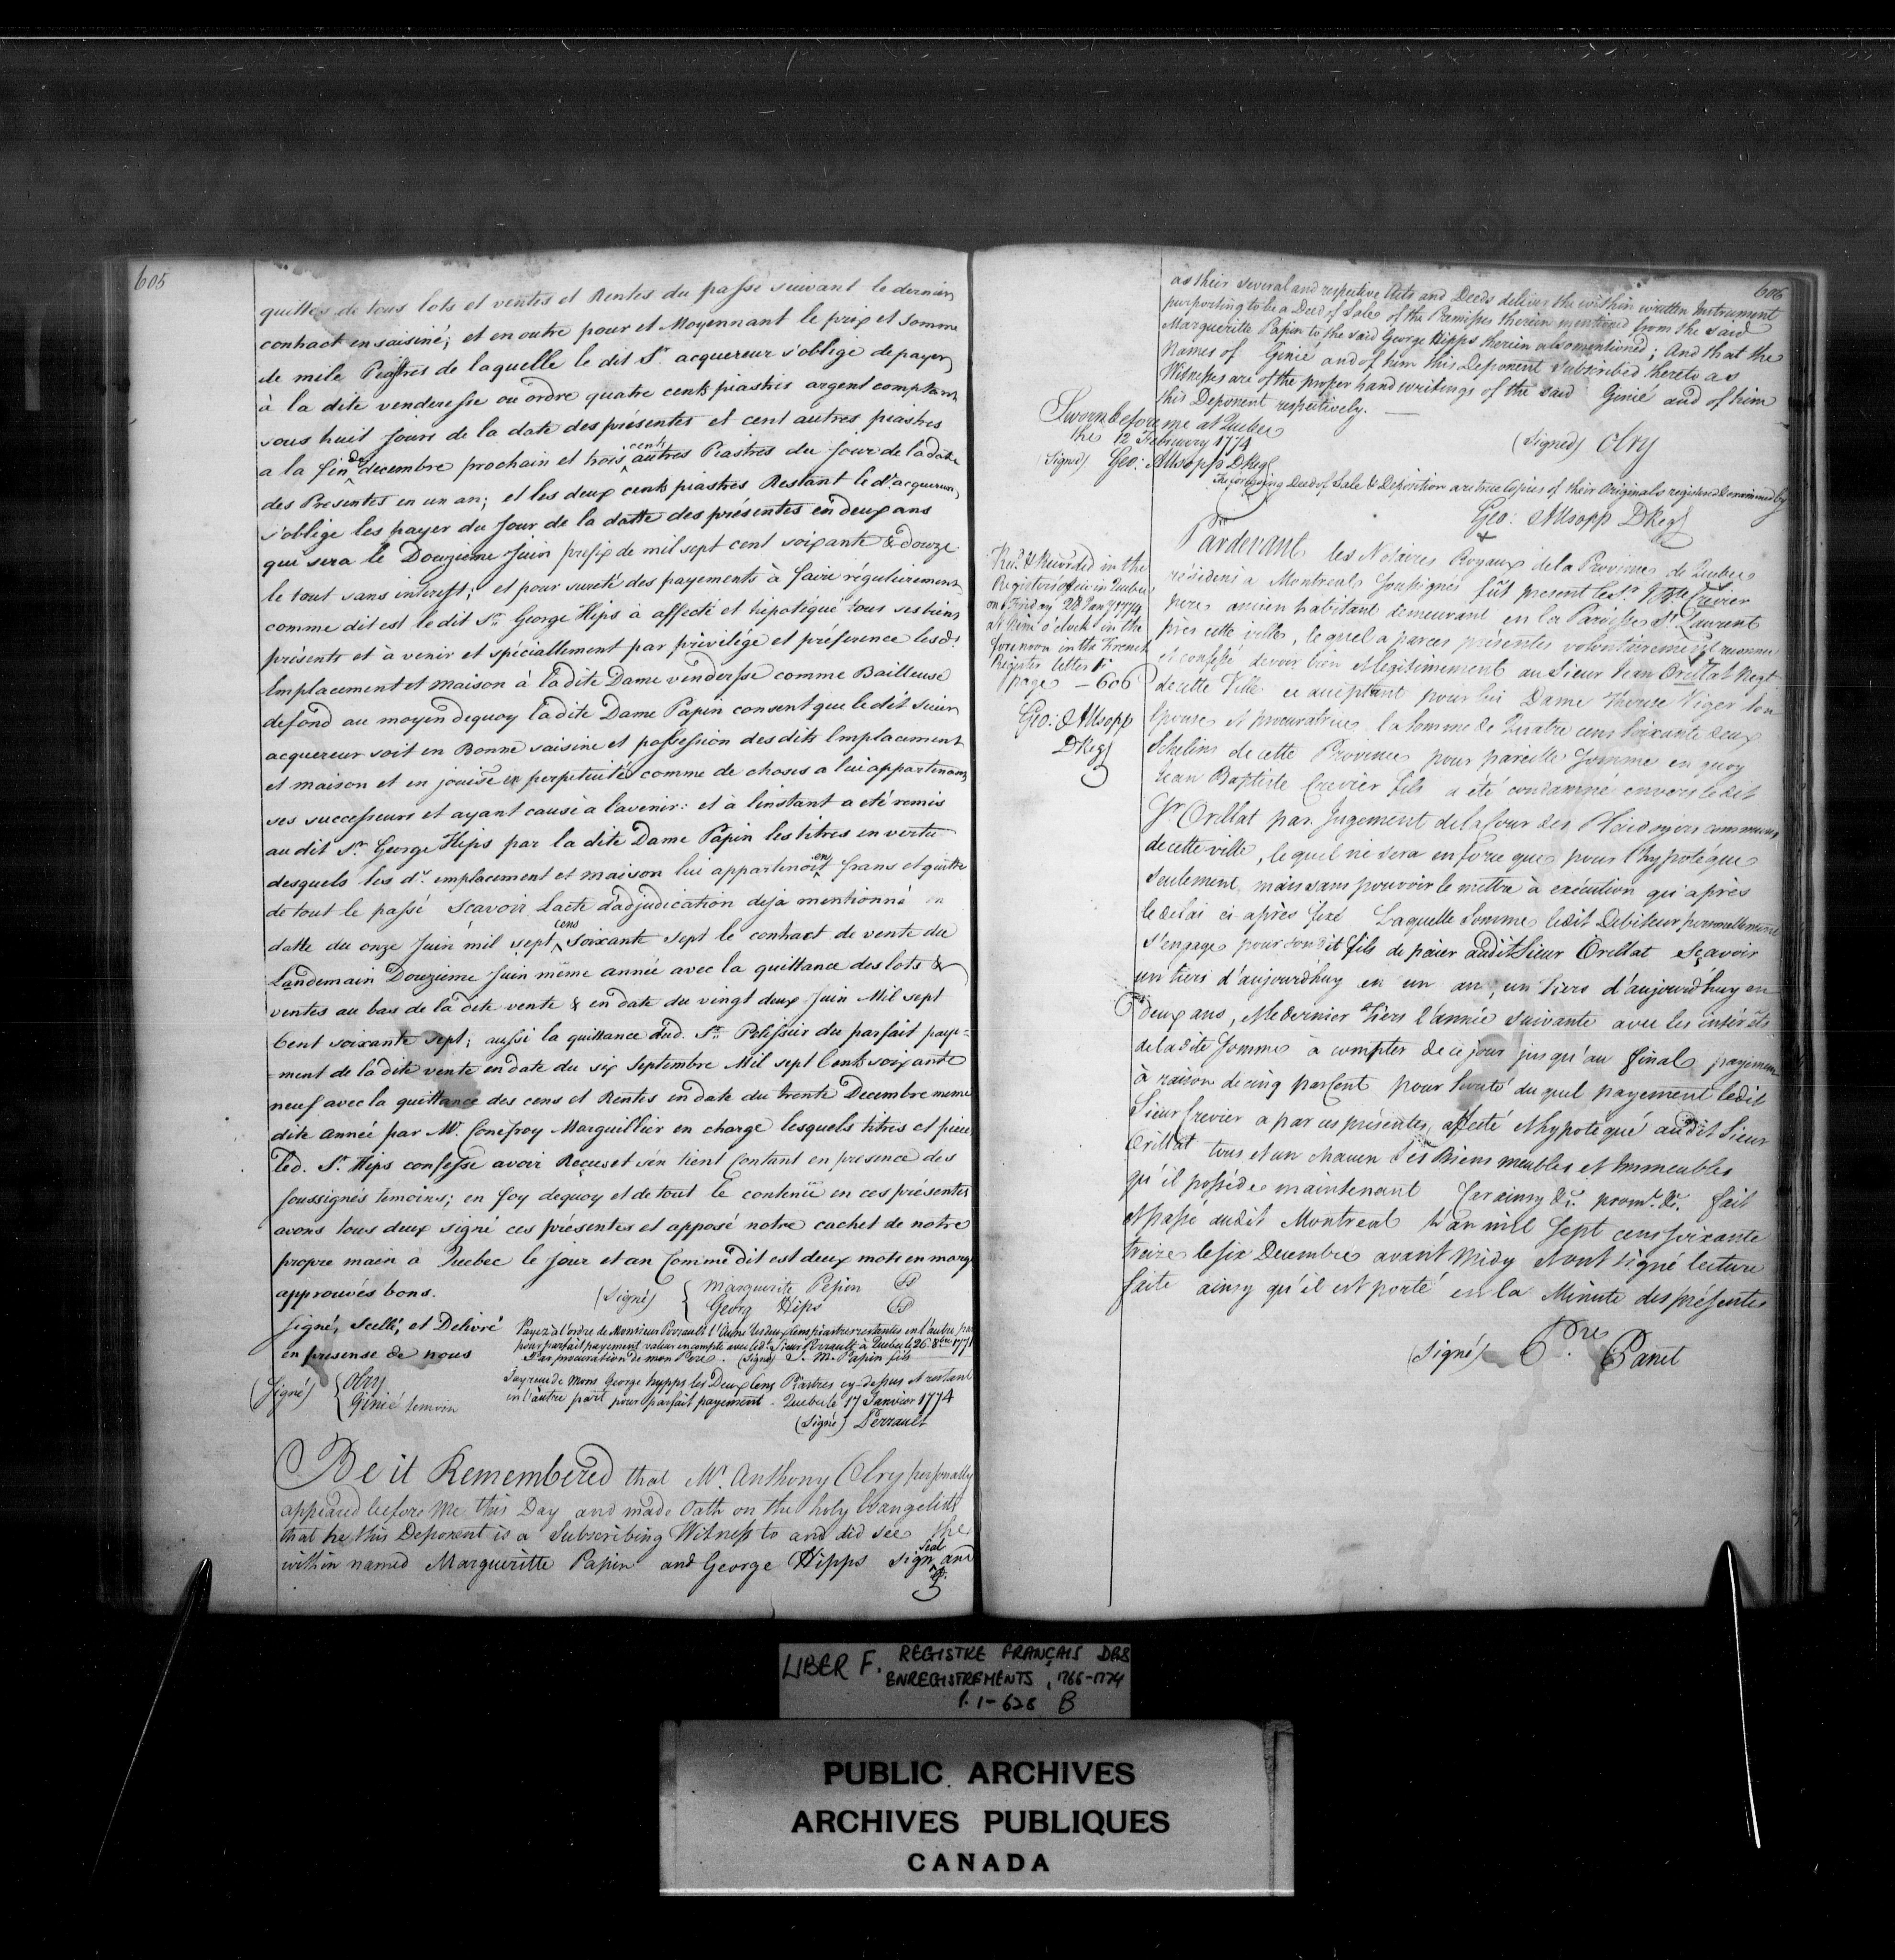 605
quittes de tous lots et ventes et Rentes du passé suivant le dernier
contract ensaisiné; et en outre pour et Moyennant le prix et somme
de mile Piastres de laquelle le dit Sr. acquereur s'oblige de payer
à la dite venderesse ou ordre quatre cents piastres argent comptant
sous huit jours de la date des présentes et cent autres piastres
a la fin de decembre prochain et trois cents autres Piastres du jour de la date
des Presentes en un an; et les deux cents piastres Restant le dt. acquereur
s'oblige les payer du Jour de la datte des présentes en deux ans
qui sera le Douzieme Juin prefix de mil sept cent soixante & douze
le tout sans interest; et pour sureté des payements à faire régulierement
comme dit est le dit Sr. George Hips à affecté et hipotéqué tous ses biens
présents et à venir et spéciallement par privilége et préference lesd.
Emplacement et maison à la dite Dame venderesse comme Bailleuse
defond au moyen dequoy la dite Dame Papin consent que le dit sieur
acquereur soit en Bonne saisine et possession des dits Emplacement
et maison et en jouisse en perpetuité comme de choses a lui appartenans
ses successeurs et ayant cause a l'avenir: et à l'instant a eté remis
au dit Sr. George Hips par la dite Dame Papin les titres en vertu
desquels les d. emplacement et maison lui appartenoient frans et quitte
de tout le passé Scavoir Lacte d'adjudication deja mentionné en
datte du onze Juin mil sept cens soixante sept le contract de vente du
Landemain Douzieme Juin même année avec la quittance des lots &
ventes au bas de la dite vente & en date du vingt deux Juin Mil sept
Cent soixante sept; aussi la quittance dud. Sr. Pelissier du parfait paye=
=ment de la dite vente en date du six Septembre Mil sept Cents soixante
neuf avec la quittance des cens et Rentes en date du trente Decembre meme
dite année par Mr. Conefroy Marguillier en charge lesquels titres et pieces
led. Sr. Hips confesse avoir Reçus et s'en tient Contant en presence des
soussignés temoins; en foy dequoy et de tout le contenü en ces présentes
avons tous deux signé ces présentes et apposé notre cachet de notre
propre main à Quebec le jour et an Comme dit est deux mots en marge
approuvés bons.
(Signé) { Marguerite Pepin
Georg Hips
Signé, Scellé, et Delivré
en presense de nous
(Signé) { Olry
Ginié temoin
Payez à l'ordre de Monsieur Perrault l'Ainé les deux Cens piastres restantes en l'autre part
pour parfait payement valeur en compte avec led. Sieur Perrault à Quebec le 26. 8bre 1771
Par procuration de mon Pere. (Signé) J. M. Papin fils
Jay reçu de Mons George hypps les Deux Cens Piastres cy-dessus et restant
en l'autre part pour parfait payement. Quebec le 17 Janvier 1774
(Signé) Perrault
Be it Remembered that Mr. Anthony Olry personally
appeared before Me this Day and made Oath on the holy Evangelists
that he this Deponent is a Subscribing Witness to and did see the
within named Margueritte Papin and George Hipps sign seal and
606
as their several and respective Acts and Deeds deliver the within written Instrument
purporting to be a Deed of Sale of the Premisses therein mentioned from the said
Margueritte Papin to the said George Hipps therein also mentioned; And that the
Names of Ginié and of him this Deponent Subscribed thereto as
Witnesses are of the proper hand writings of the said Ginié and of him
this Deponent respectively.
Sworn before me at Quebec
the 12 February 1774
(Signed) Geo: Allsopp DReg
(Signed) Olry
The foregoing Deed of Sale & Deposition are true Copies of their Originals registered & examined by
Geo: Allsopp DReg
Recd. & Recorded in the
Registers office in Quebec
on Friday 28 Jany 1774
at Nine o'clock in the
forenoon in the French
Register letter F
page - 606
Geo: Allsopp
DReg
Pardevant les Notaires Royaux de la Province de Quebec
résidens a Montreal Soussignés fût present le Sr. J Bte. Crevier
pere ancien habitant demeurant en la Paroisse St. Laurent
près cette ville, lequel a par ces présentes volontairement reconnu
et confessé devoir bien & legitimement au Sieur Jean Orillat Negt.
de cette Ville ce acceptant pour lui Dame Therese Viger son
Epouse et procuratrice la somme de Quatre cens soixante deux
Schelins de cette Province pour pareille Somme en quoy
Jean Baptiste Crevier fils a été condamné envers le dit
Sr. Orillat par Jugement de la Cour des Plaidoyers communs
de cette ville, lequel ne sera en force que pour l'hypotéque
seulement mais sans pouvoir le mettre à exécution qu'après
le delai ci après fixé Laquelle Somme ledit Debiteur personnellement
s'engage pour son dit fils de païer audit Sieur Orillat sçavoir
un tiers d'aujourd'huy en un an, un tiers d'aujourd'huy en
deux ans, & le dernier tiers l'année suivante avec les intérêts
de la dite Somme à compter de ce jour jusqu'au final payement
à raison de cinq par Cent pour sureté du quel payement ledit
Sieur Crevier a par ces présentes, affecté & hypotequé audit Sieur
Orillat tous et un chacun ses Biens meubles et Immeubles
qu'il posséde maintenant Car ainsy &c. promt. &c. fait
et passé audit Montreal L'an mil Sept cens soixante
treize le six Decembre avant Midy & ont signé lecture
faite ainsy qu'il est porté en la Minute des présentes
(Signé) Pre. Panet
LIBER F. REGISTRE FRANÇAIS DES
ENREGISTREMENTS, 1766-1774
P. 1-628 B
PUBLIC ARCHIVES
ARCHIVES PUBLIQUES
CANADA